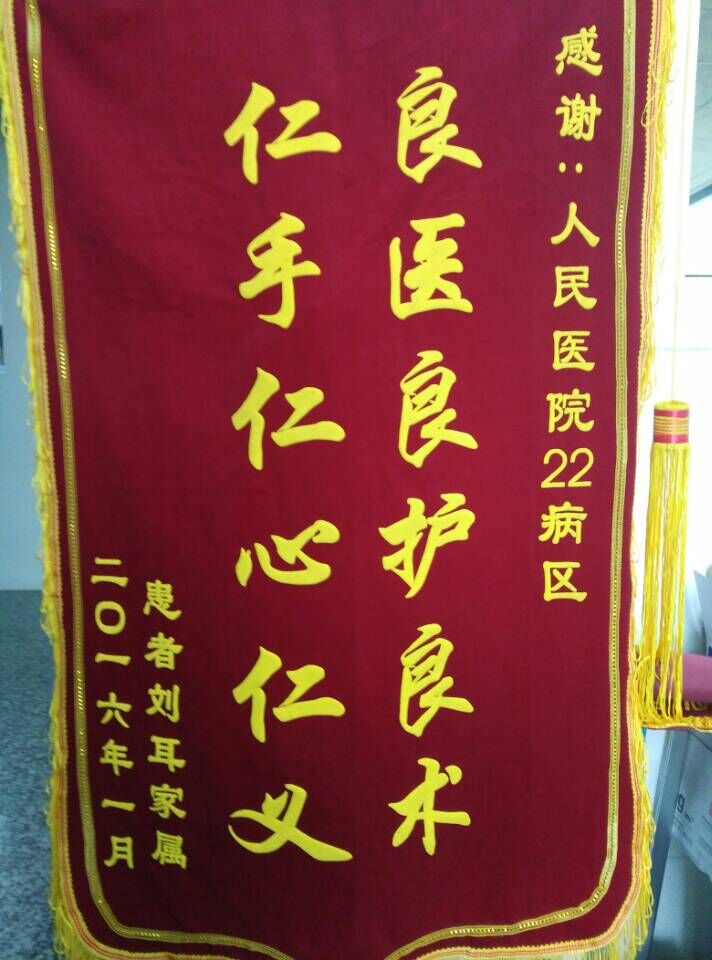 感谢:人民医院22病区
良医良护良术
仁手仁心仁义
患者刘耳家属
二〇一六年一月